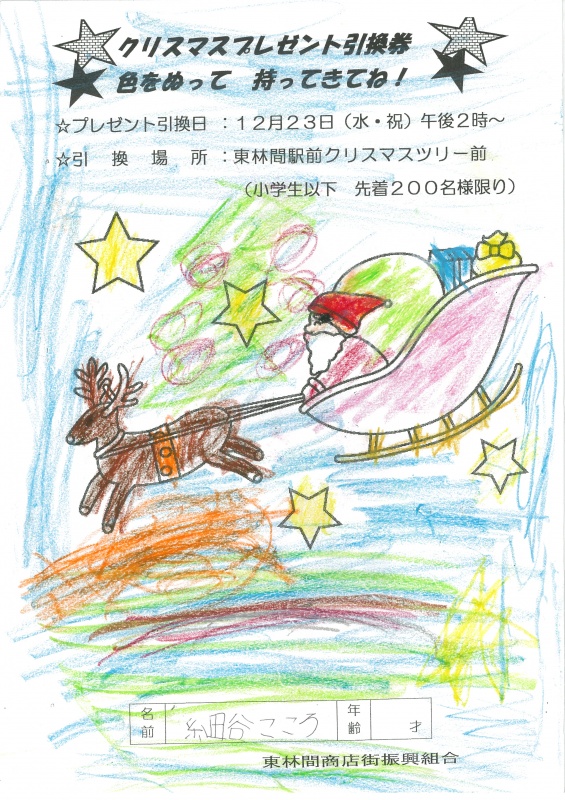 クリスマスプレゼント引換券
色をぬって　持ってきてね！
☆プレゼント引換日　：１２月２３日（水・祝）午後２時～
☆引　換　場　所　：東林間駅前クリスマスツリー前
（小学生以下　先着２００名様限り）
名前　細田谷こころ　年齢　才
東林間商店街振興組合